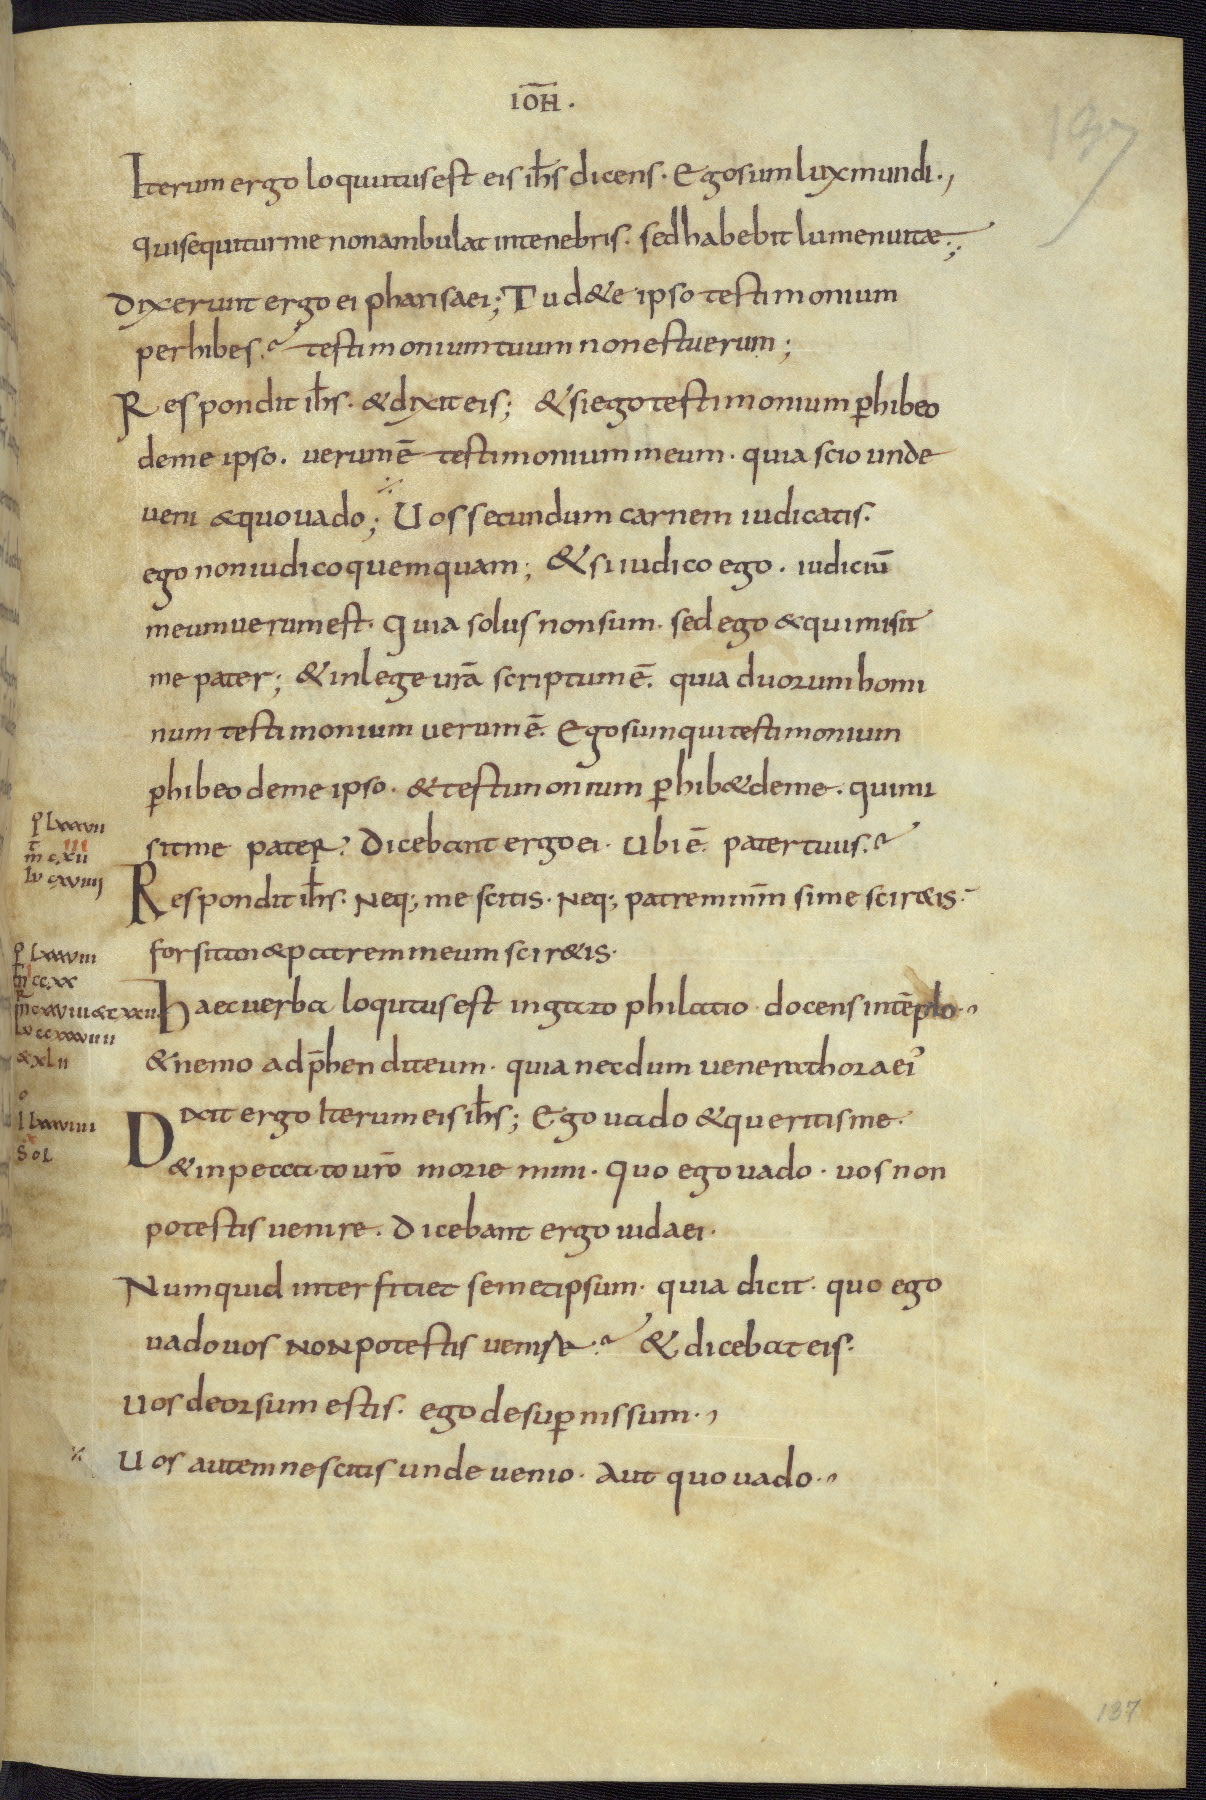 IOH̅.
137
Iterum ergo loquutus est eis ih̅s dicens. Ego sum lux mundi.,
qui sequitur me non ambulat in tenebris. sed habebit lumen uitae.,;
Dixerunt ergo ei pharisaei; Tu d&e ipso testimonium
perhibes. testimonium tuum non est uerum;
Respondit ih̅s. & dixit eis; & si ego testimonium p̱hibeo
de me ipso. uerum ē testimonium meum. quia scio unde
ueni & quo uado; Uos secundum carnem iudicatis.
ego non iudico quemquam; & si iudico ego. iudiciū
meum uerum est. Quia solus non sum. sed ego & qui misit
me pater; & in lege ur̅a scriptum ē. quia duorum homi
num testimonium uerum ē. Ego sum qui testimonium
p̱hibeo de me ipso. & testimonium p̱hib& de me. qui mi
sit me pater. Dicebant ergo ei. Ubi ē. pater tuus.
Respondit ih̅s. Neq; me scitis. Neq; patrem mm̅ si me scir&is.
forsitan & patrem meum scir&is.
Haec uerba loqutus est in gazo philatio. docens in tēplo.,
& nemo adp̅hendit eum. quia necdum uenerat hora ei'
Dixit ergo Iterum eis ih̅s; Ego uado & queritis me.
& in peccato ur̅o morie mini. Quo ego uado. uos non
potestis uenire. Dicebant ergo iudaei.
Numquid interficiet semetipsum. quia dicit. quo ego
uado uos NoN potestis uenire. & dicebat eis.
Uos deorsum estis. ego de sup̱nis sum.,
Uos autem nescitis unde uenio. Aut quo uado.,
lxxxvii
lxxxviii
m ccxx
& xlii
lxxxviiii
sol
137